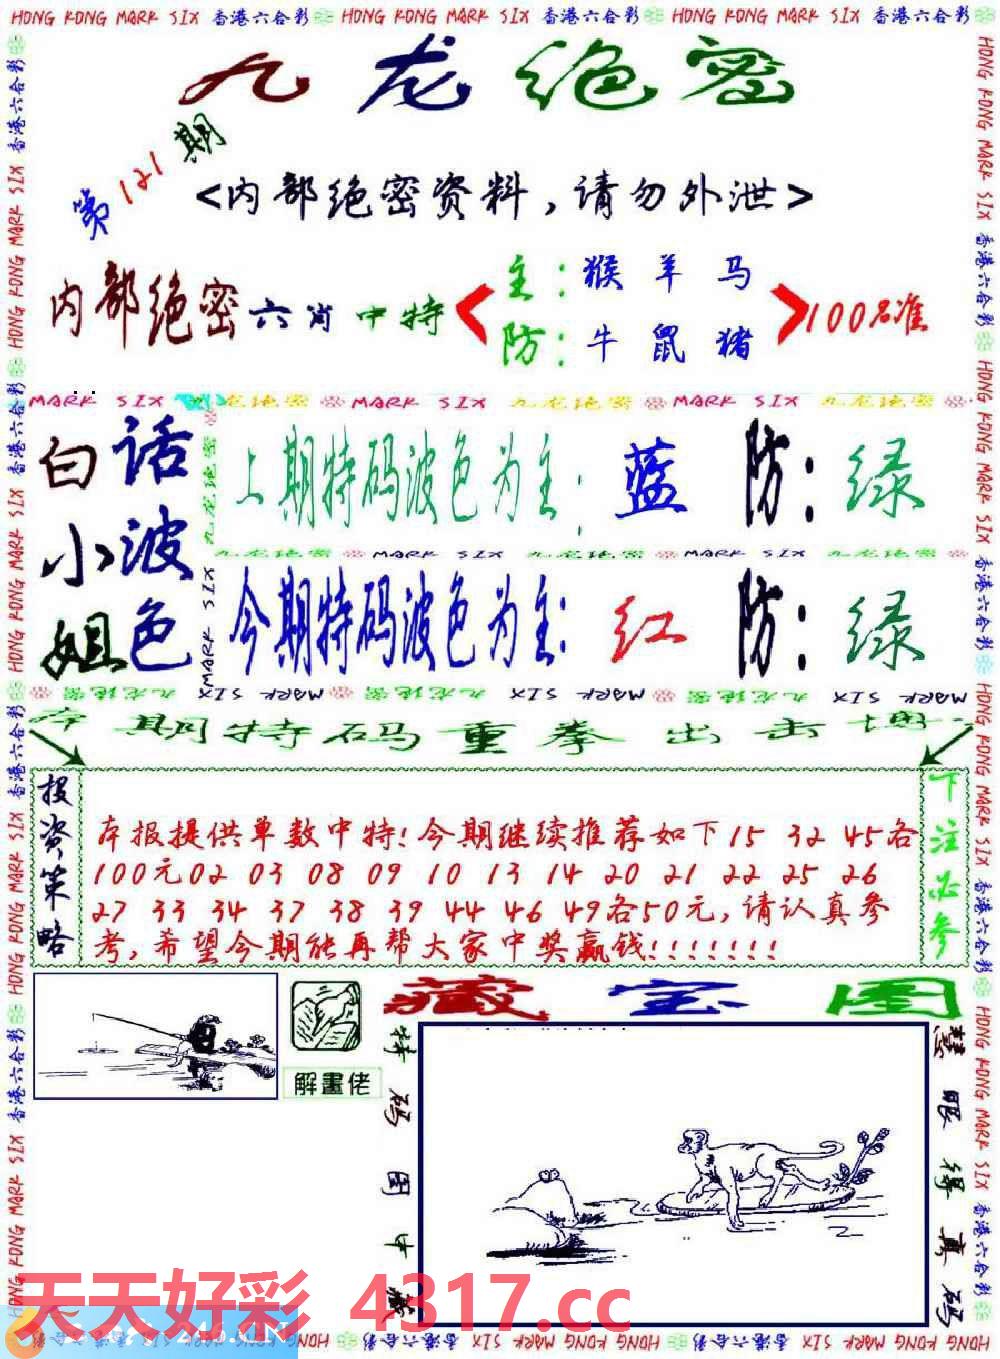 HONG KONG MARK SIX 香港六合彩 HONG KONG MARK SIX 香港六合彩 HONG KONG MARK SIX 香港六合彩
九龙绝密
第121期
<内部绝密资料,请勿外泄>
内部绝密六肖中特
主:猴 羊 马
防:牛 鼠 猪
100%准
MARK SIX 九龙绝密 MARK SIX 九龙绝密 MARK SIX 九龙绝密
白小姐
话波色
上期特码波色为主: 蓝 防: 绿
九龙绝密 MARK SIX 九龙绝密 MARK SIX 九龙绝密
今期特码波色为主: 红 防: 绿
本期特码重拳出击
投资策略
本报提供单数中特!今期继续推荐如下15 32 45各
100元02 03 08 09 10 13 14 20 21 22 25 26
27 33 34 37 38 39 44 46 49各50元,请认真参
考,希望今期能再帮大家中奖赢钱!!!!!!!
下注必参
解畫佬
藏宝图
特码图中藏
慧眼得真码
天天好彩 4317.cc
HONG KONG MARK SIX 香港六合彩